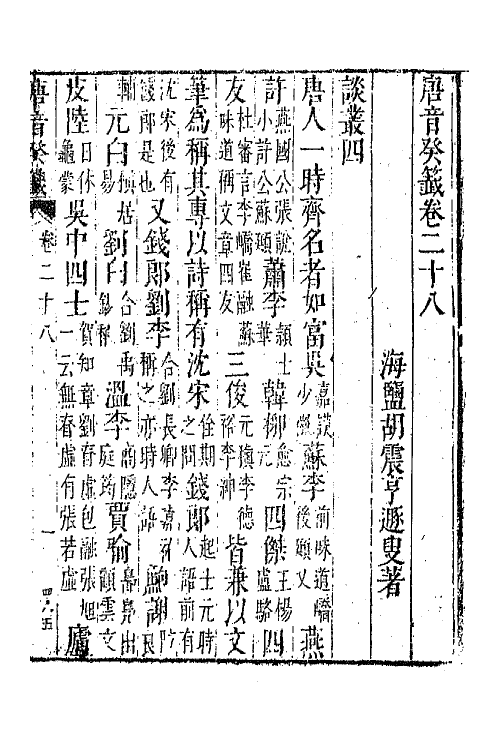 唐音癸籤卷二十八
海鹽胡震亨遯叟著
談叢四
唐人一時齊名者如富吳嘉謨少微蘇李前味道嶠後頲乂燕
許燕國公張說小許公蘇頲蕭李穎士華韓柳愈宗元四傑王楊盧駱四
友杜審言李嶠崔融蘇味道稱文章四友三俊元稹李德裕李紳皆兼以文
筆為稱其專以詩稱有沈宋佺期之問錢郎起士元時人語前有
沈宋後有錢郎是也又錢郎劉李合劉長卿李嘉祐稱之亦時人語鮑謝防良
輔元白稹居易劉白合劉禹錫稱溫李商隱庭筠賈喻島鳧出顧雲文
皮陸日休龜蒙吳中四士賀知章劉眘虛包融張旭一云無眘虛有張若虛廬
唐音癸籤 卷二十八 一